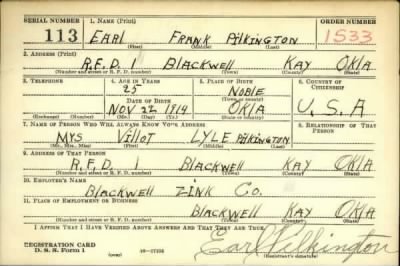 SERIAL NUMBER 1. NAME (Print) ORDER NUMBER
113 EARL FRANK PILKINGTON 1533
(First) (Middle) (Last)
2. ADDRESS (Print)
R.F.D. 1 BLACKWELL KAY OKLA
(Number and street or R. F. D. number) (Town) (County) (State)
3. TELEPHONE 4. AGE IN YEARS 5. PLACE OF BIRTH 6. COUNTRY OF CITIZENSHIP
25 NOBLE
(Town or county)
DATE OF BIRTH
NOV 22 1914 OKLA U.S.A
(Exchange) (No.) (Mo.) (Day) (Yr.) (State or country)
7. NAME OF PERSON WHO WILL ALWAYS KNOW YOUR ADDRESS 8. RELATIONSHIP OF THAT PERSON
MRS LYLE PILKINGTON
(Mr., Mrs., Miss) (First) (Middle) (Last)
9. ADDRESS OF THAT PERSON
R.F.D. 1 BLACKWELL KAY OKLA
(Number and street or R. F. D. number) (Town) (County) (State)
10. EMPLOYER'S NAME
BLACKWELL ZINK CO.
11. PLACE OF EMPLOYMENT OR BUSINESS
BLACKWELL KAY OKLA
(Number and street or R. F. D. number) (Town) (County) (State)
I AFFIRM THAT I HAVE VERIFIED ABOVE ANSWERS AND THAT THEY ARE TRUE.
REGISTRATION CARD
D. S. S. Form 1 (over) Earl Pilkington
(Registrant's signature)